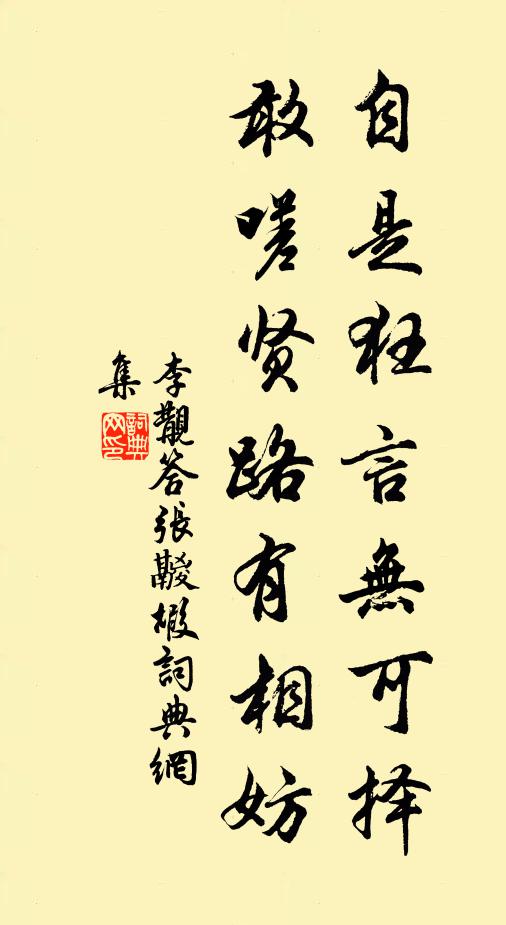 自是狂言無可择
敢嗟贤路有相妨
李觏答張殿椴詞典網
集
詞典網印